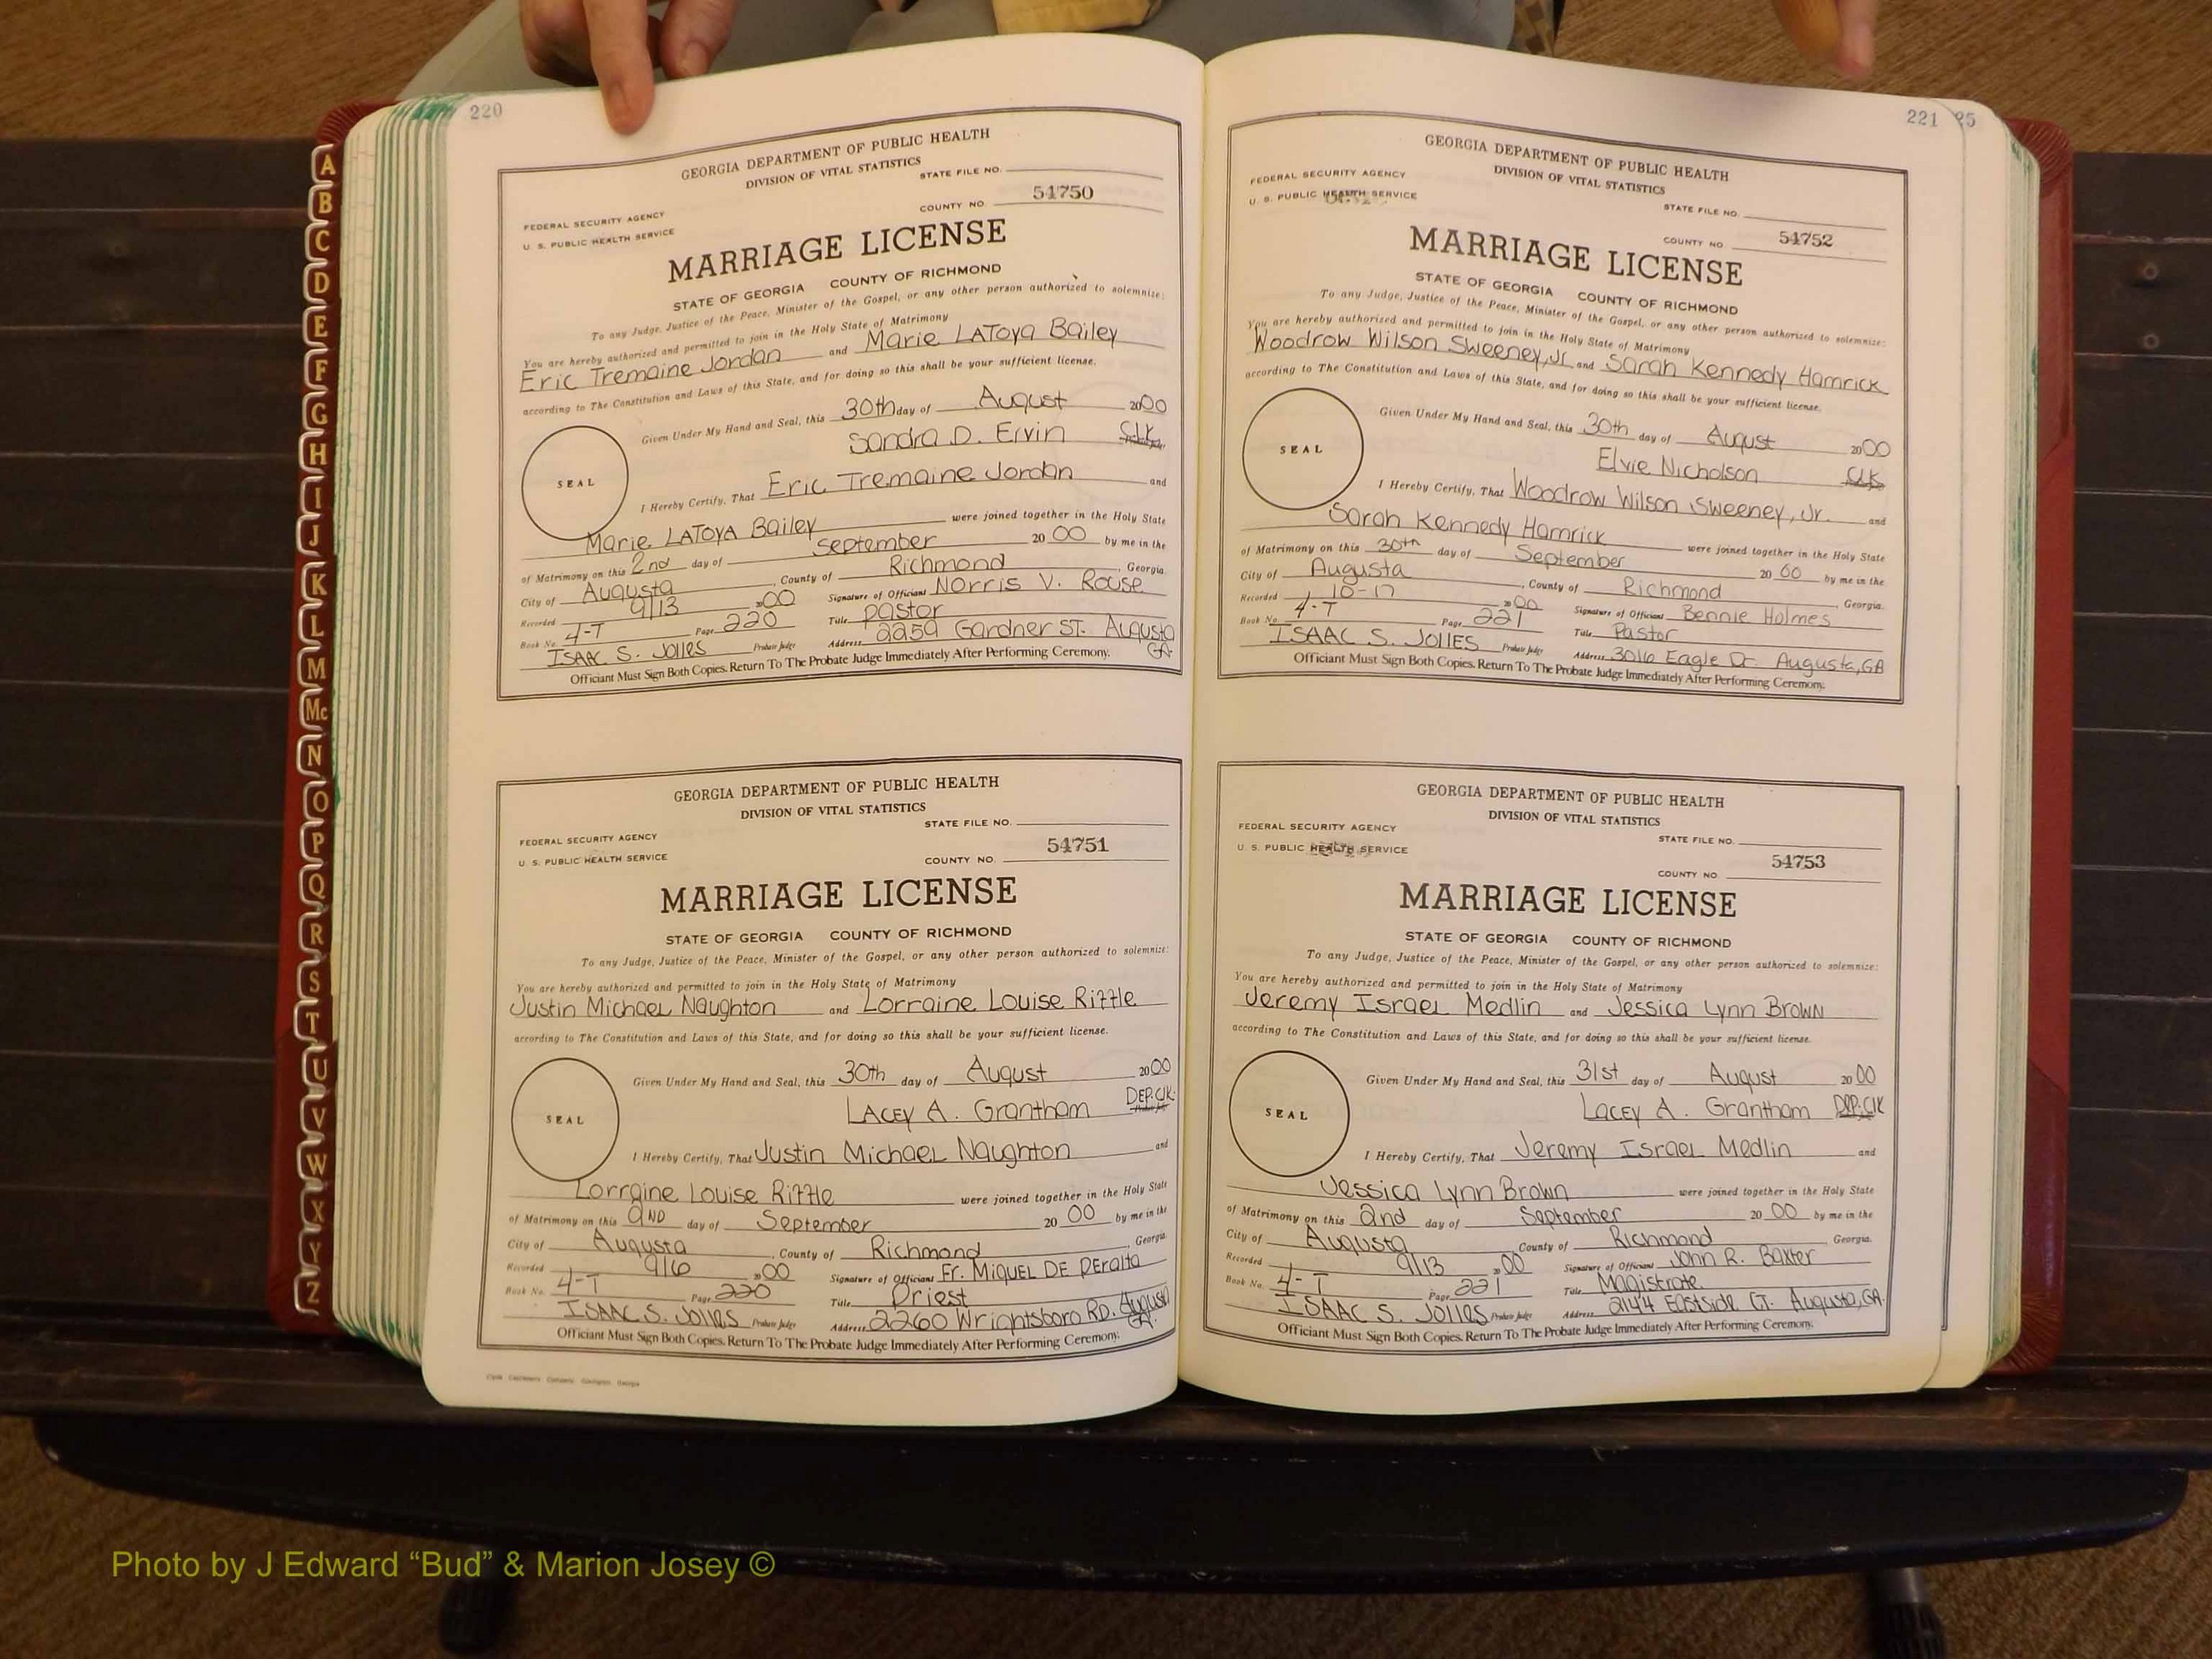 A
B
C
D
E
F
G
H
I
J
K
L
M
Mc
N
O
P
Q
R
S
T
U
V
W
X
Y
Z
220
GEORGIA DEPARTMENT OF PUBLIC HEALTH
DIVISION OF VITAL STATISTICS
STATE FILE NO.
FEDERAL SECURITY AGENCY
U. S. PUBLIC HEALTH SERVICE
COUNTY NO. 54750
MARRIAGE LICENSE
STATE OF GEORGIA COUNTY OF RICHMOND
To any Judge, Justice of the Peace, Minister of the Gospel, or any other person authorized to solemnize:
You are hereby authorized and permitted to join in the Holy State of Matrimony
Eric Tremaine Jordan and Marie LAToya Bailey
according to The Constitution and Laws of this State, and for doing so this shall be your sufficient license.
Given Under My Hand and Seal, this 30th day of August 2000
Sandra D. Ervin CLK
SEAL
I Hereby Certify, That Eric Tremaine Jordan and
Marie LAToyA Bailey were joined together in the Holy State
of Matrimony on this 2nd day of September 20 00 by me in the
City of Augusta, County of Richmond, Georgia.
Recorded 9/13 2000 Signature of Officiant Norris V. Rouse
Book No. 4-T Page 220 Title Pastor
ISAAC S. JOLLES Probate Judge Address 2259 Gardner ST. Augusta GA.
Officiant Must Sign Both Copies. Return To The Probate Judge Immediately After Performing Ceremony.
GEORGIA DEPARTMENT OF PUBLIC HEALTH
DIVISION OF VITAL STATISTICS
STATE FILE NO.
FEDERAL SECURITY AGENCY
U. S. PUBLIC HEALTH SERVICE
COUNTY NO. 54751
MARRIAGE LICENSE
STATE OF GEORGIA COUNTY OF RICHMOND
To any Judge, Justice of the Peace, Minister of the Gospel, or any other person authorized to solemnize:
You are hereby authorized and permitted to join in the Holy State of Matrimony
Justin Michael Naughton and Lorraine Louise Rizzle
according to The Constitution and Laws of this State, and for doing so this shall be your sufficient license.
Given Under My Hand and Seal, this 30th day of August 2000
LACEY A. Grantham DEP. CLK.
SEAL
I Hereby Certify, That Justin Michael Naughton and
Lorraine Louise Rizzle were joined together in the Holy State
of Matrimony on this 2ND day of September 20 00 by me in the
City of Augusta, County of Richmond, Georgia.
Recorded 9/6 2000 Signature of Officiant Fr. MIGUEL DE PEralta
Book No. 4-T Page 220 Title Priest
ISAAC S. JOLLES Probate Judge Address 2260 Wrightsboro RD. Augusta GA.
Officiant Must Sign Both Copies. Return To The Probate Judge Immediately After Performing Ceremony.
221 25
GEORGIA DEPARTMENT OF PUBLIC HEALTH
DIVISION OF VITAL STATISTICS
FEDERAL SECURITY AGENCY
U. S. PUBLIC HEALTH SERVICE
STATE FILE NO.
COUNTY NO. 54752
MARRIAGE LICENSE
STATE OF GEORGIA COUNTY OF RICHMOND
To any Judge, Justice of the Peace, Minister of the Gospel, or any other person authorized to solemnize:
You are hereby authorized and permitted to join in the Holy State of Matrimony
Woodrow Wilson Sweeney, Jr. and Sarah Kennedy Hamrick
according to The Constitution and Laws of this State, and for doing so this shall be your sufficient license.
Given Under My Hand and Seal, this 30th day of August 2000
Elvie Nicholson CLK
SEAL
I Hereby Certify, That Woodrow Wilson Sweeney, Jr. and
Sarah Kennedy Hamrick were joined together in the Holy State
of Matrimony on this 30th day of September 20 00 by me in the
City of Augusta, County of Richmond, Georgia.
Recorded 10-17 2000 Signature of Officiant Bennie Holmes
Book No. 4-T Page 221 Title Pastor
ISAAC S. JOLLES Probate Judge Address 3016 Eagle Dr. Augusta, GA
Officiant Must Sign Both Copies. Return To The Probate Judge Immediately After Performing Ceremony.
GEORGIA DEPARTMENT OF PUBLIC HEALTH
DIVISION OF VITAL STATISTICS
FEDERAL SECURITY AGENCY
U. S. PUBLIC HEALTH SERVICE
STATE FILE NO.
COUNTY NO. 54753
MARRIAGE LICENSE
STATE OF GEORGIA COUNTY OF RICHMOND
To any Judge, Justice of the Peace, Minister of the Gospel, or any other person authorized to solemnize:
You are hereby authorized and permitted to join in the Holy State of Matrimony
Jeremy Israel Medlin and Jessica Lynn Brown
according to The Constitution and Laws of this State, and for doing so this shall be your sufficient license.
Given Under My Hand and Seal, this 31st day of August 20 00
Lacey A. Grantham DEP. CLK
SEAL
I Hereby Certify, That Jeremy Israel Medlin and
Jessica Lynn Brown were joined together in the Holy State
of Matrimony on this 2nd day of September 20 00 by me in the
City of Augusta County of Richmond, Georgia.
Recorded 9/13 2000 Signature of Officiant John R. Baxter
Book No. 4-T Page 221 Title Magistrate
ISAAC S. JOLLES Probate Judge Address 2144 Eastside CT. Augusta, GA.
Officiant Must Sign Both Copies. Return To The Probate Judge Immediately After Performing Ceremony.
Photo by J Edward “Bud” & Marion Josey ©